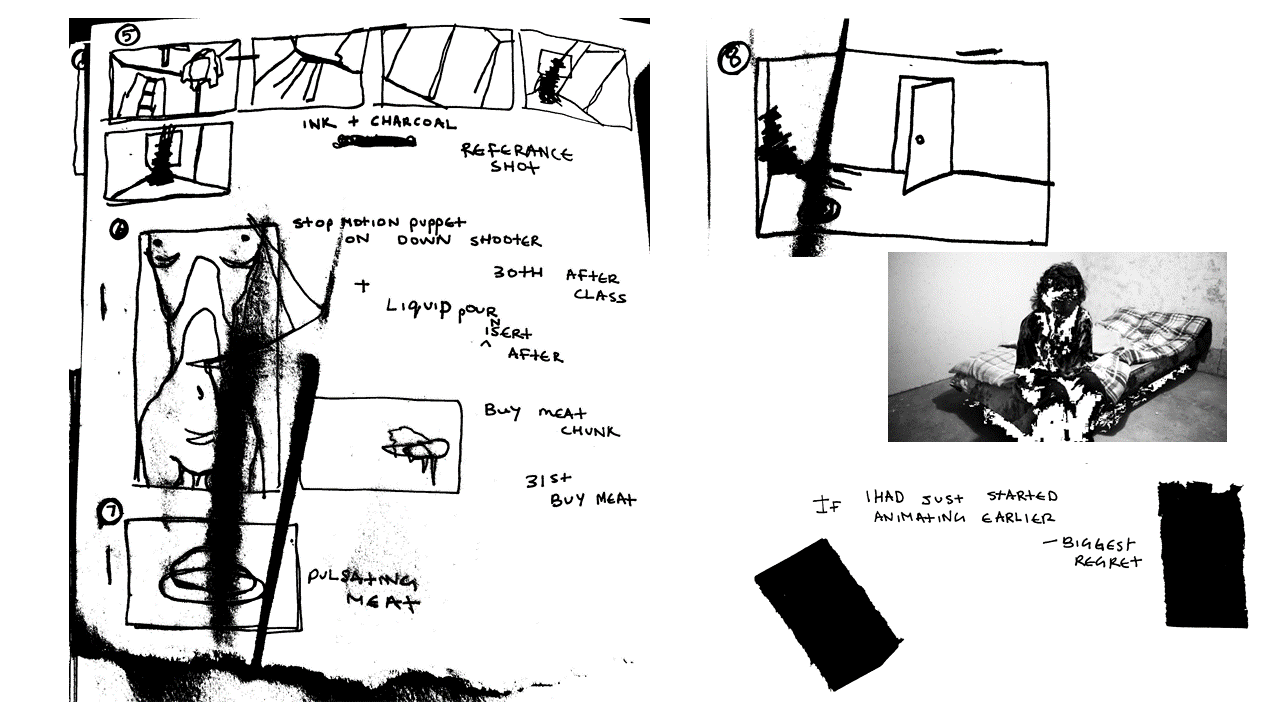 5
INK + CHARCOAL
REFERANCE
SHOT
6
STOP MOTION PUPPET
ON DOWN SHOOTER
+
30TH AFTER
CLASS
LIQUID POUR
N
ISERT
^
AFTER
BUY MEAT
CHUNK
31ST
BUY MEAT
7
PULSATING
MEAT
8
IF I HAD JUST STARTED
ANIMATING EARLIER
— BIGGEST
REGRET